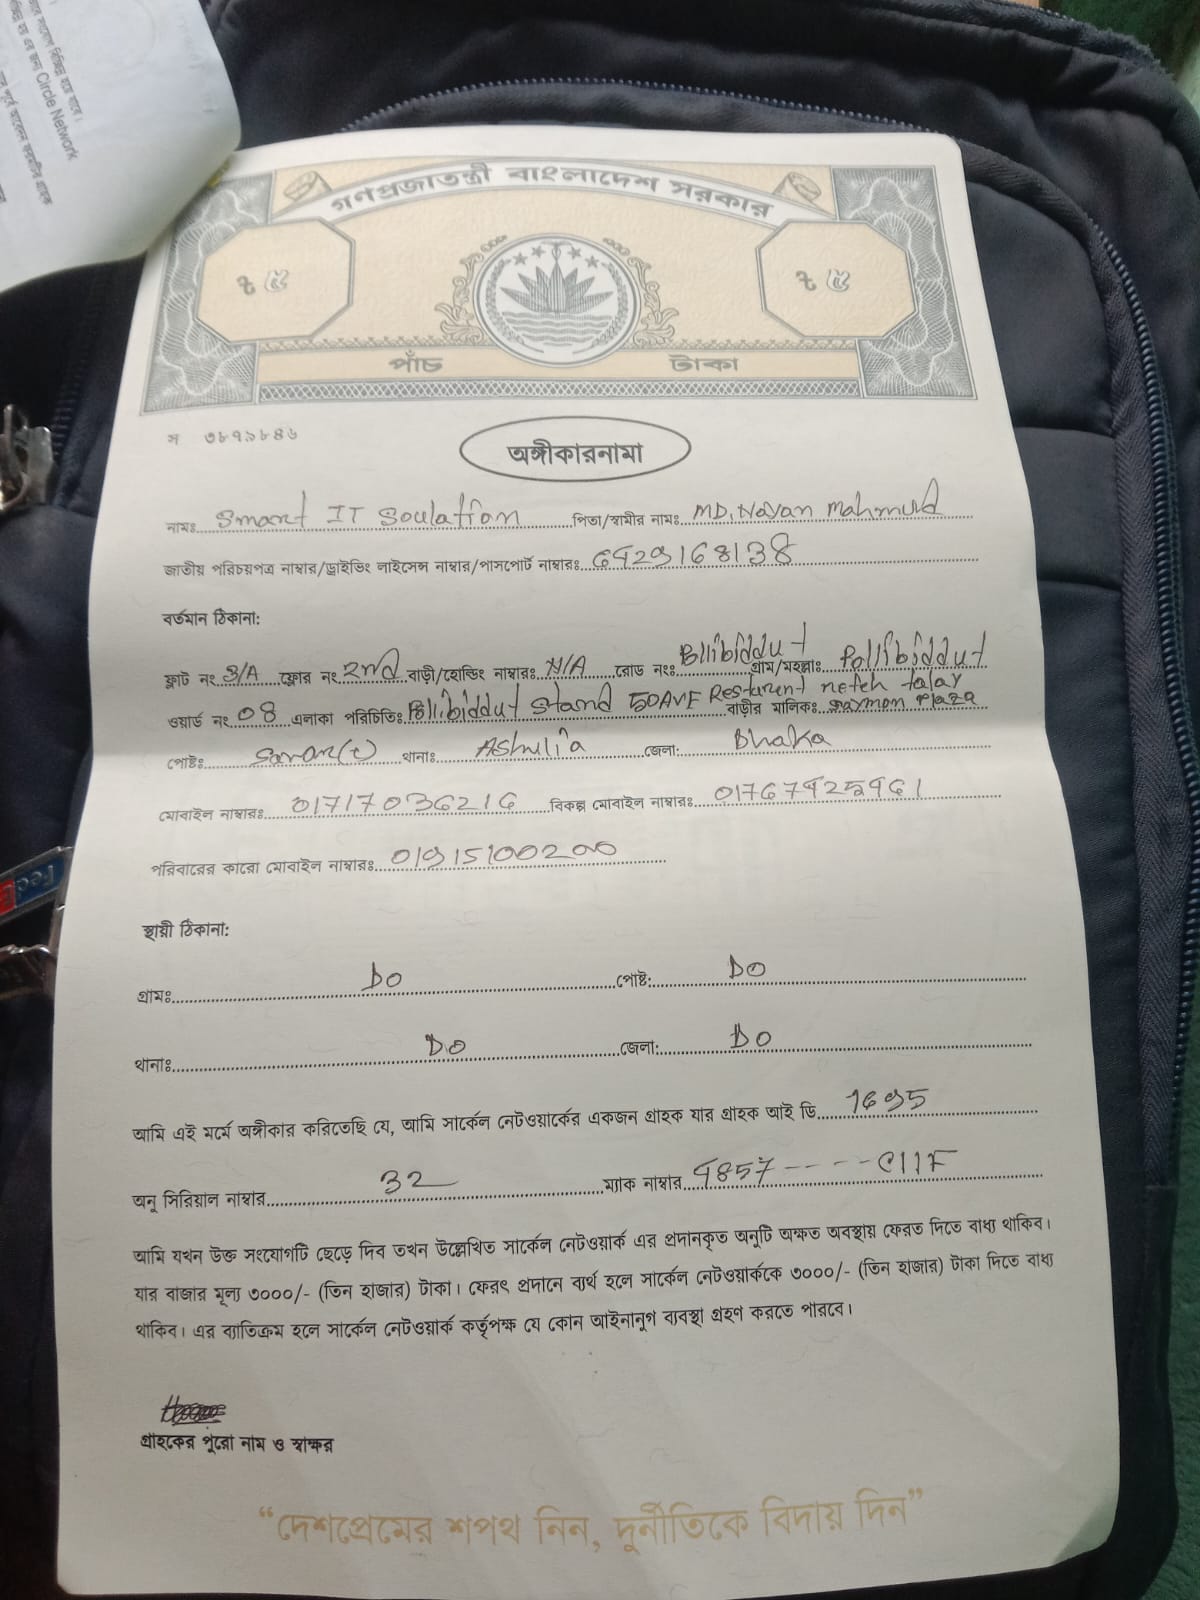 গণপ্রজাতন্ত্রী বাংলাদেশ সরকার
৳ ৫ ৳ ৫
পাঁচ টাকা
স ৩৮৭৯৮৪৬
অঙ্গীকারনামা
নামঃ Smart IT Soulation পিতা/স্বামীর নামঃ MD. Nayan Mahmud
জাতীয় পরিচয়পত্র নাম্বার/ড্রাইভিং লাইসেন্স নাম্বার/পাসপোর্ট নাম্বারঃ 6429168138
বর্তমান ঠিকানা:
ফ্লাট নং 3/A ফ্লোর নং 2nd বাড়ী/হোল্ডিং নাম্বারঃ N/A রোড নংঃ Pollibiddut গ্রাম/মহল্লাঃ Pollibiddut
ওয়ার্ড নং 08 এলাকা পরিচিতিঃ Pollibiddut stand 50AVE Resturent neteh talay বাড়ীর মালিকঃ Plaza
পোষ্টঃ থানাঃ Ashulia জেলা: Dhaka
মোবাইল নাম্বারঃ 01717036216 বিকল্প মোবাইল নাম্বারঃ
পরিবারের কারো মোবাইল নাম্বারঃ 01915100200
স্থায়ী ঠিকানা:
গ্রামঃ DO পোষ্ট: DO
থানাঃ DO জেলা: DO
আমি এই মর্মে অঙ্গীকার করিতেছি যে, আমি সার্কেল নেটওয়ার্কের একজন গ্রাহক যার গ্রাহক আই ডি 1695
অনু সিরিয়াল নাম্বার 32 ম্যাক নাম্বার 4857-----C11F
আমি যখন উক্ত সংযোগটি ছেড়ে দিব তখন উল্লেখিত সার্কেল নেটওয়ার্ক এর প্রদানকৃত অনুটি অক্ষত অবস্থায় ফেরত দিতে বাধ্য থাকিব।
যার বাজার মূল্য ৩০০০/- (তিন হাজার) টাকা। ফেরৎ প্রদানে ব্যর্থ হলে সার্কেল নেটওয়ার্ককে ৩০০০/- (তিন হাজার) টাকা দিতে বাধ্য
থাকিব। এর ব্যাতিক্রম হলে সার্কেল নেটওয়ার্ক কর্তৃপক্ষ যে কোন আইনানুগ ব্যবস্থা গ্রহণ করতে পারবে।
গ্রাহকের পুরো নাম ও স্বাক্ষর
“দেশপ্রেমের শপথ নিন, দুর্নীতিকে বিদায় দিন”
Circle Network